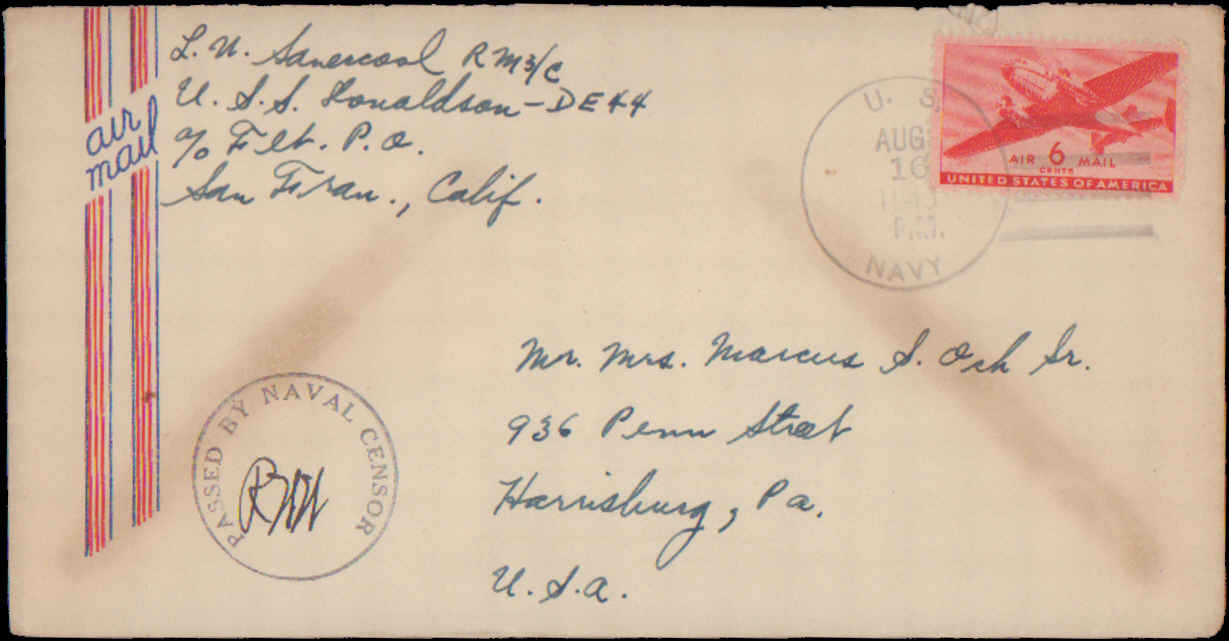 air
mail
L. U. Sanercool RM3/c
U. S. S. Donaldson-DE44
c/o Flt. P. O.
San Fran., Calif.
U. S.
AUG
16
P.M.
NAVY
AIR 6 MAIL
CENTS
UNITED STATES OF AMERICA
PASSED BY NAVAL CENSOR
Mr. Mrs. Marcus S. Och Sr.
936 Penn Street
Harrisburg, Pa.
U. S. A.